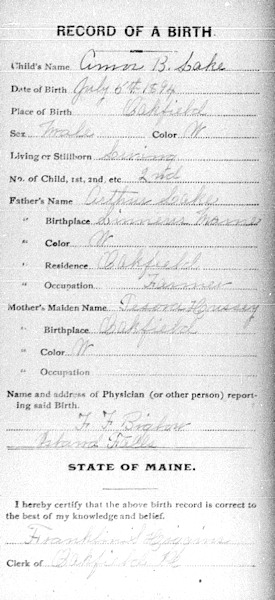 RECORD OF A BIRTH.
Child's Name B. Lake
Date of Birth July 5th 1894
Place of Birth Oakfield
Sex Male Color W
Living or Stillborn Living
No. of Child, 1st, 2nd, etc. 2nd
Father's Name Arthur Lake
" Birthplace Linneus Maine
" Color W
" Residence Oakfield
" Occupation Farmer
Mother's Maiden Name Hussey
" Birthplace Oakfield
" Color W
" Occupation
Name and address of Physician (or other person) report-
ing said Birth.
F. F. Bigelow
Island Falls
STATE OF MAINE.
I hereby certify that the above birth record is correct to
the best of my knowledge and belief.
Franklin
Clerk of Oakfield